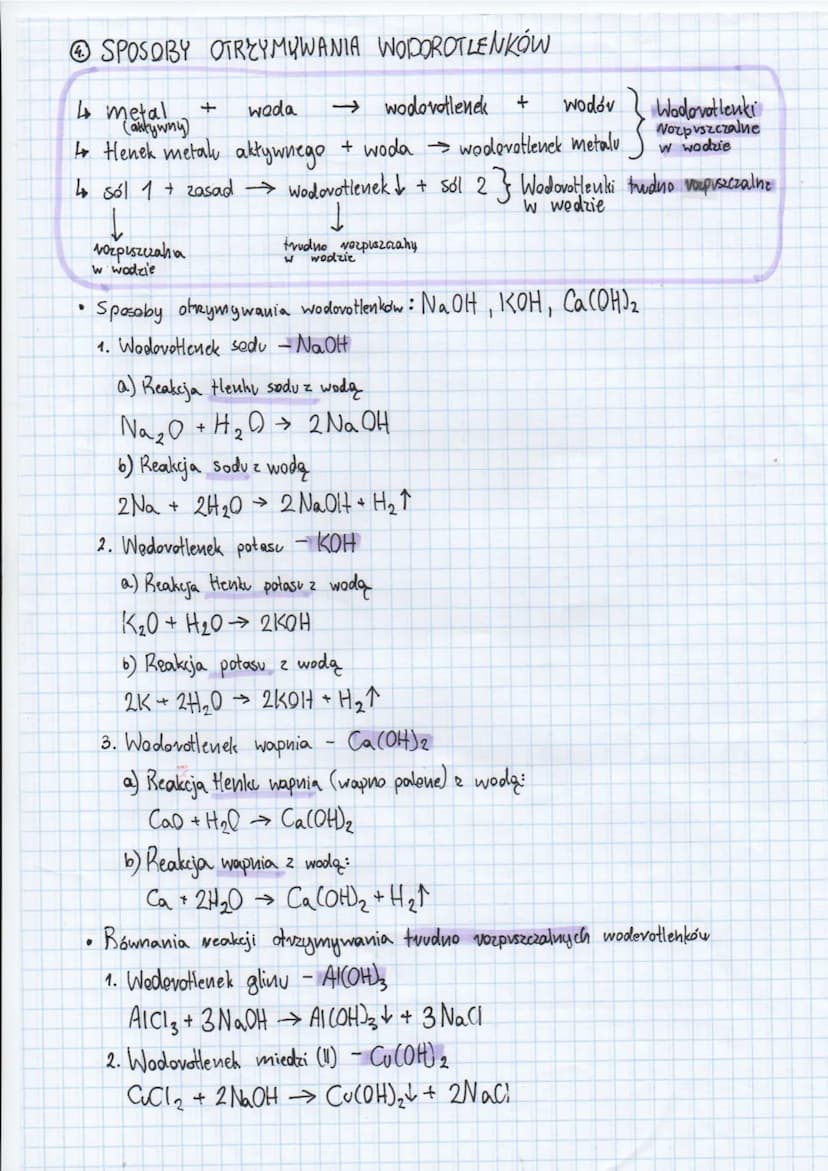 4. SPOSOBY OTRZYMYWANIA WODOROTLENKÓW
↳ metal + woda → wodorotlenek + wodór } Wodorotlenki
(aktywny) rozpuszczalne
↳ tlenek metalu aktywnego + woda → wodorotlenek metalu w wodzie
↳ sól 1 + zasad → wodorotlenek↓ + sól 2 } Wodorotlenki trudno rozpuszczalne
w wodzie
↓ ↓
rozpuszczalna trudno rozpuszczalny
w wodzie w wodzie
• Sposoby otrzymywania wodorotlenków: NaOH, KOH, Ca(OH)₂
1. Wodorotlenek sodu - NaOH
a) Reakcja tlenku sodu z wodą
Na₂O + H₂O → 2NaOH
b) Reakcja sodu z wodą
2Na + 2H₂O → 2NaOH + H₂↑
2. Wodorotlenek potasu - KOH
a) Reakcja tlenku potasu z wodą
K₂O + H₂O → 2KOH
b) Reakcja potasu z wodą
2K + 2H₂O → 2KOH + H₂↑
3. Wodorotlenek wapnia - Ca(OH)₂
a) Reakcja tlenku wapnia (wapno palone) z wodą:
CaO + H₂O → Ca(OH)₂
b) Reakcja wapnia z wodą:
Ca + 2H₂O → Ca(OH)₂ + H₂↑
• Równania reakcji otrzymywania trudno rozpuszczalnych wodorotlenków
1. Wodorotlenek glinu - Al(OH)₃
AlCl₃ + 3NaOH → Al(OH)₃↓ + 3NaCl
2. Wodorotlenek miedzi (II) - Cu(OH)₂
CuCl₂ + 2NaOH → Cu(OH)₂↓ + 2NaCl